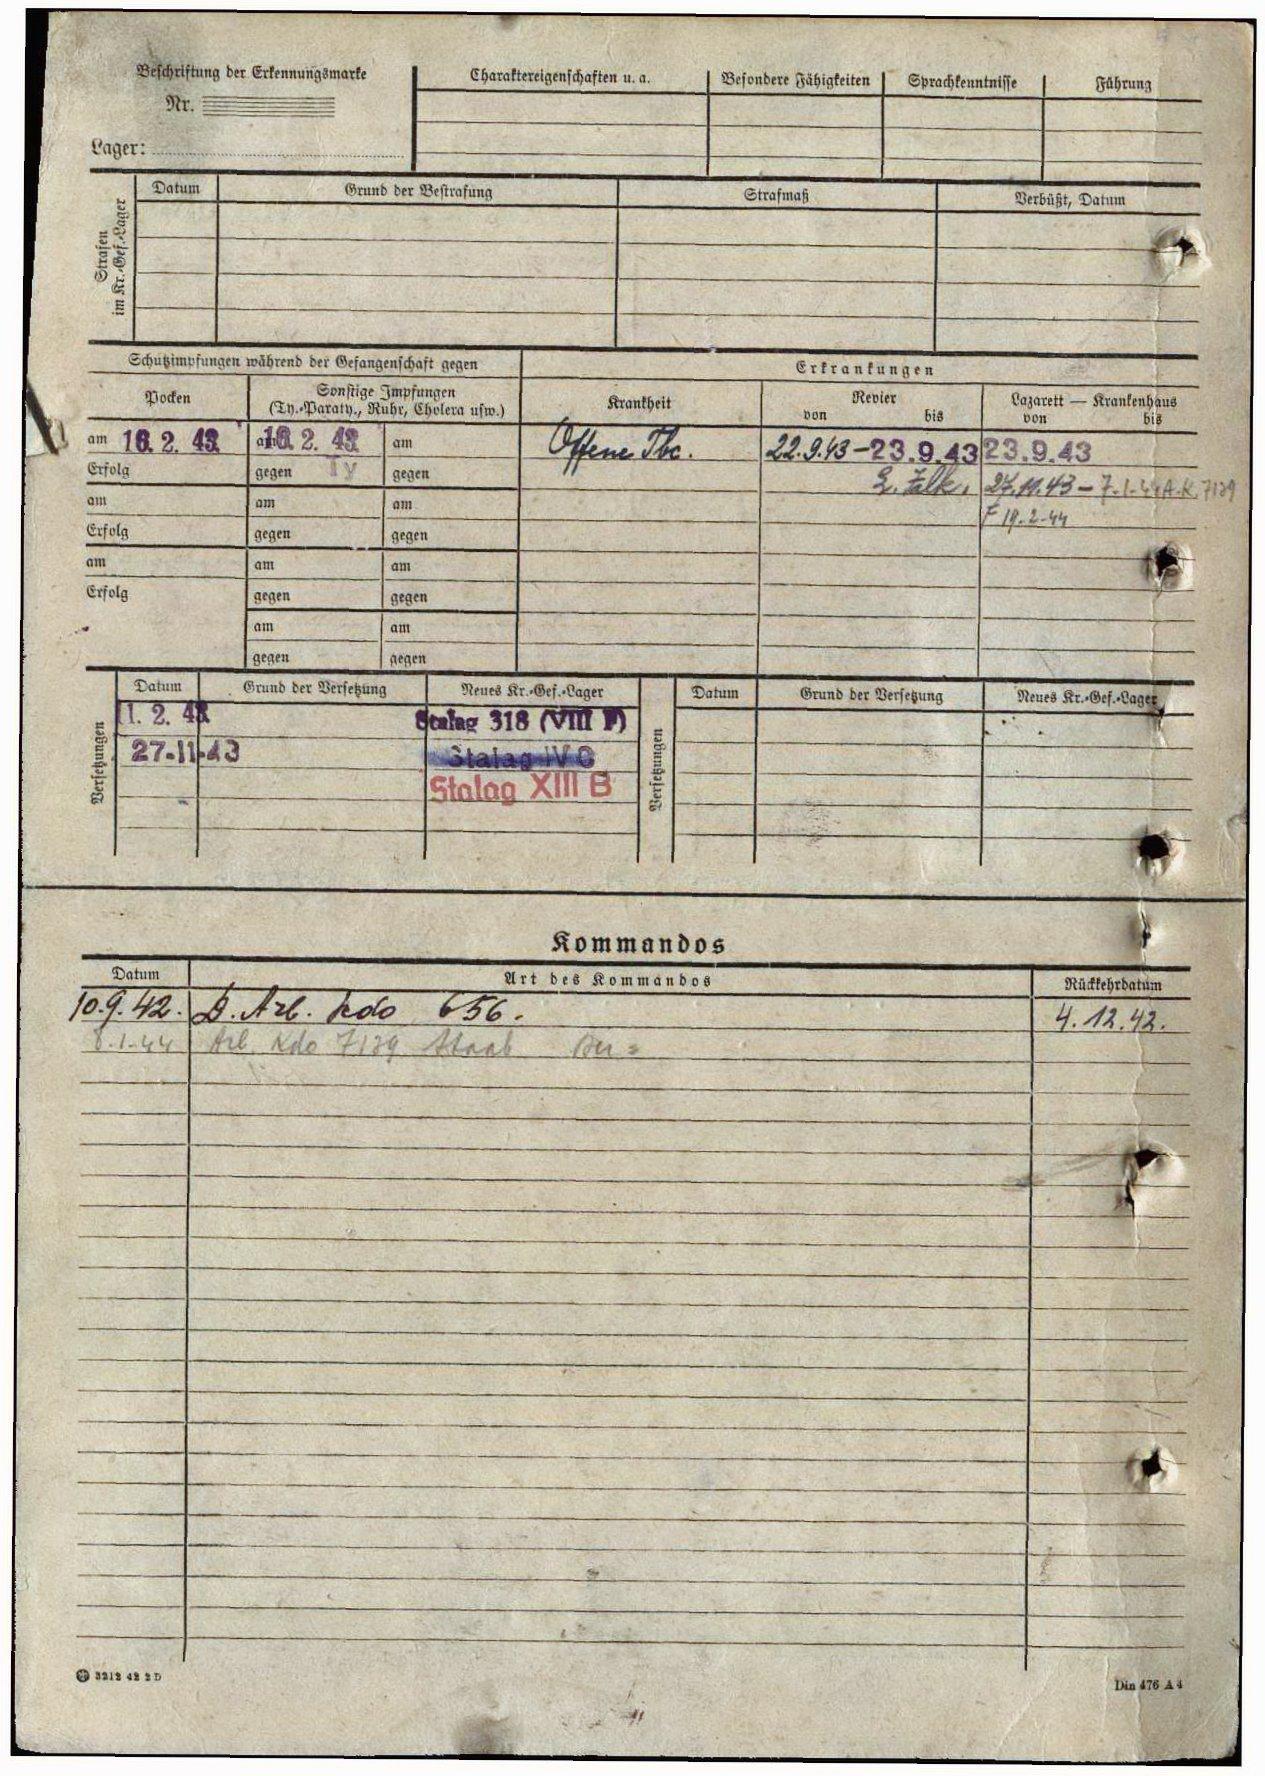 Beschriftung der Erkennungsmarke
Nr.
Lager:
Charaktereigenschaften u. a.
Besondere Fähigkeiten
Sprachkenntnisse
Führung
Strafen
im Kr.-Gef.-Lager
Datum
Grund der Bestrafung
Strafmaß
Verbüßt, Datum
Schutzimpfungen während der Gefangenschaft gegen
Erkrankungen
Pocken
Sonstige Impfungen
(Ty.-Paraty., Ruhr, Cholera usw.)
Krankheit
Revier
von bis
Lazarett — Krankenhaus
von bis
am 16. 2. 43. am 16. 2. 43 am
Offene Tbc. 22.9.43 - 23.9.43 23.9.43
Erfolg gegen Ty gegen
27.11.43 - 7.1.44 A.K. 7139
am am am
19-2-44
Erfolg gegen gegen
am am am
Erfolg gegen gegen
am am
gegen gegen
Versetzungen
Datum Grund der Versetzung Neues Kr.-Gef.-Lager
1. 2. 43. Stalag 318 (VIII F)
27-11-43 Stalag IV C
Stalag XIII B
Versetzungen
Datum Grund der Versetzung Neues Kr.-Gef.-Lager
Kommandos
Datum Art des Kommandos Rückkehrdatum
10.9.42. Arb. Kdo 656. 4.12.42.
8-1-44 Arb. Kdo 7139
3212 42 2 D
Din 476 A 4